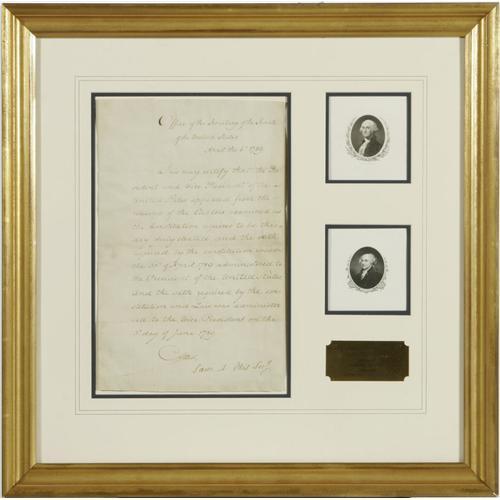 Office of the Secretary of the Senate
of the United States
April the 6th 1789
This may certify that the Pre
sident and Vice President of the
United States appeared from the
returns of the Electors
the Constitution to be this
day duly elected and the oath
required by the constitution
the 30th of April 1789 administered to
the President of the United States
and the oath required by the con
stitution and Law was administer
ed to the Vice President on the
3d day of June 1789
Sam A Otis Secy